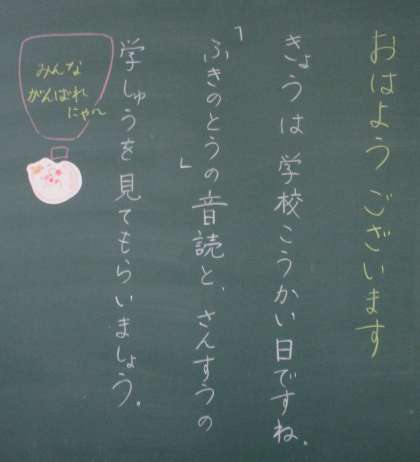 おはようございます
きょうは学校こうかい日ですね。
「ふきのとう」の音読と、さんすうの
学しゅうを見てもらいましょう。
みんな
がんばれ
にゃ〜